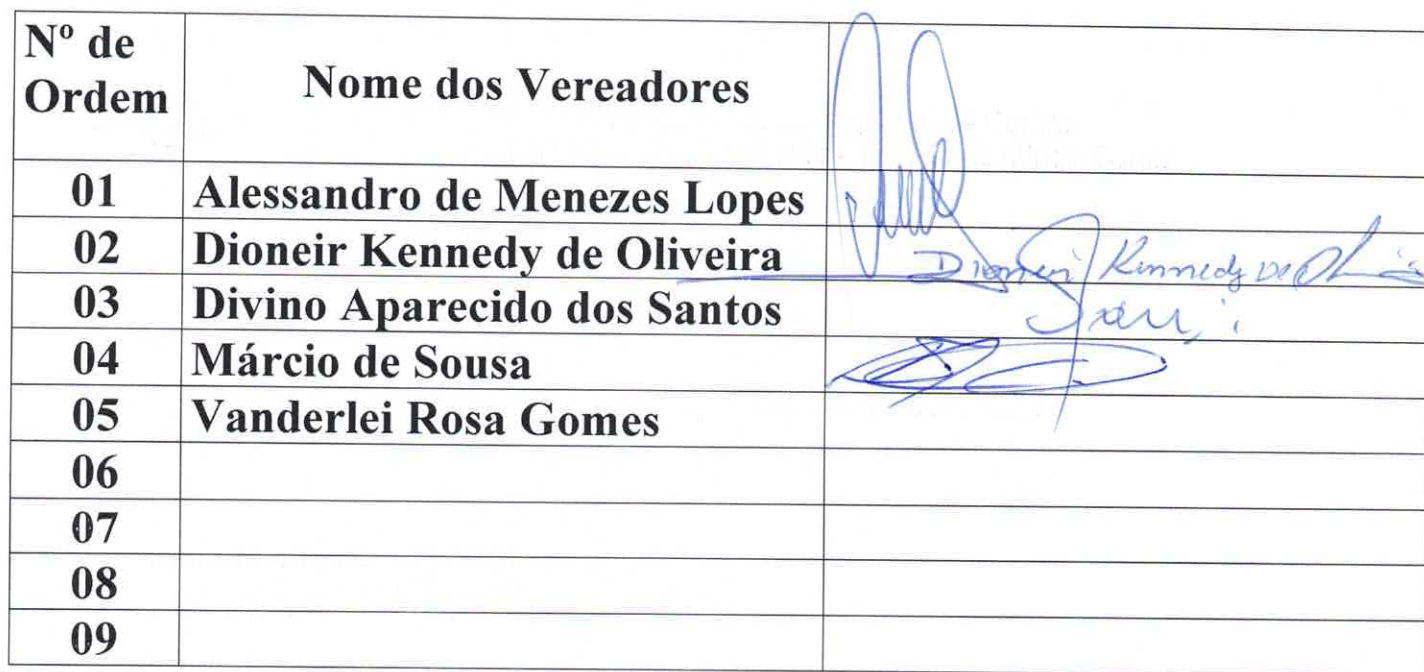 Nº de
Ordem
Nome dos Vereadores
01 Alessandro de Menezes Lopes
02 Dioneir Kennedy de Oliveira Dioneir Kennedy de
03 Divino Aparecido dos Santos
04 Márcio de Sousa
05 Vanderlei Rosa Gomes
06
07
08
09